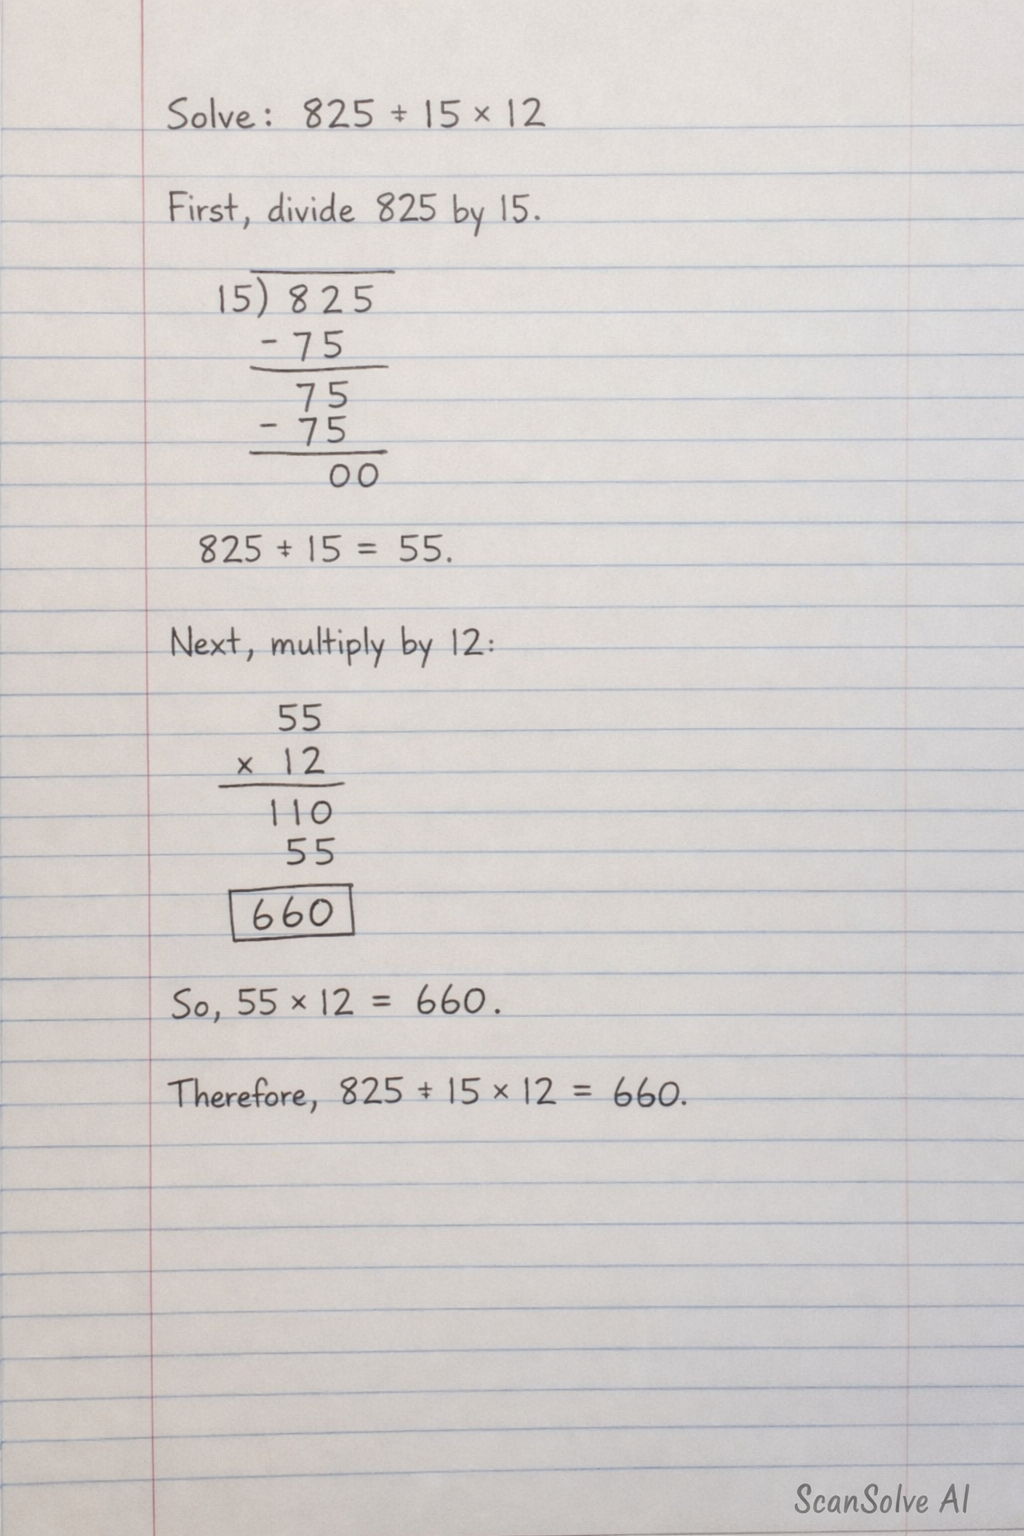 Solve: 825 ÷ 15 × 12
First, divide 825 by 15.
15) 825
- 75
75
- 75
00
825 ÷ 15 = 55.
Next, multiply by 12:
55
× 12
110
55
660
So, 55 × 12 = 660.
Therefore, 825 ÷ 15 × 12 = 660.
ScanSolve AI